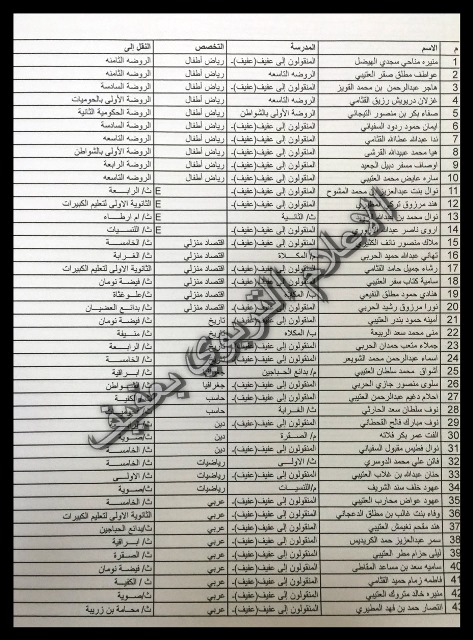 م الاسم المدرسة التخصص النقل إلى
1 منيره مناحي سجدي الهيضل المنقولون إلى عفيف(عفيف)- رياض أطفال الروضه الثامنه
2 عواطف مطلق صقر العتيبي الروضه التاسعه رياض أطفال الروضه الثامنه
3 هاجر عبدالرحمن بن محمد القويز المنقولون إلى عفيف(عفيف)- رياض أطفال الروضة السادسة
4 غزلان درويش رزيق القثامي الروضه التاسعه رياض أطفال الروضة الأولى بالحوميات
5 صفاء بكر بن منصور التيجاني الروضة الأولى بالشواطن رياض أطفال الروضة الحكومية الثانية
6 ايمان حمود ردود السفياني المنقولون إلى عفيف(عفيف)- رياض أطفال الروضة السادسة
7 ندا عبدالله عطالله القثامي المنقولون إلى عفيف(عفيف)- رياض أطفال الروضه التاسعه
8 هيا محمد عبيدالله القرشي المنقولون إلى عفيف(عفيف)- رياض أطفال الروضة الأولى بالشواطن
9 اوصاف مسفر دبيل الجعيد المنقولون إلى عفيف(عفيف)- رياض أطفال الروضة الرابعة
10 ساره عايض محمد العتيبي المنقولون إلى عفيف(عفيف)- رياض أطفال الروضه التاسعه
11 نوال بنت عبدالعزيز بن محمد المشوح المنقولون إلى عفيف(عفيف)- E ث/ الرابـــعة
12 هند مرزوق المنقولون إلى عفيف(عفيف)- E الثانوية الاولى لتعليم الكبيرات
13 نوال محمد بن ث/ الثانـــية E ث/ ام ارطـــاء
14 اروى ناصر المنقولون إلى عفيف(عفيف)- E ث/ اللنسيـــات
15 ملاك منصور نائف المنقولون إلى عفيف(عفيف)- اقتصاد منزلي ث/ الخامـــسة
16 تهاني عبدالله حميد الحربي م/ المكـــلاة اقتصاد منزلي ث/ الغـــرابة
17 رشاء جميل حامد القثامي المنقولون إلى عفيف(عفيف)- اقتصاد منزلي الثانوية الاولى لتعليم الكبيرات
18 سامية كتاب سفر العتيبي المنقولون إلى عفيف(عفيف)- اقتصاد منزلي ث/ فيضة نومان
19 هنادي حمود مطلق النفيعي ب/ المكلاه اقتصاد منزلي
20 نورا مرزوق رشيد الحربي المنقولون إلى عفيف(عفيف)- اقتصاد منزلي ث/ بدائع العضيـــان
21 امينه حمود بندر العتيبي المنقولون إلى عفيف(عفيف)- تاريخ ث/ فيضة نومان
22 منى محمد سعد الربيعة ب/ المكلاه تاريخ ث/ منـــيفة
23 جملاء متعب حمدان الحربي المنقولون إلى عفيف(عفيف)- ث/ الرابـــعة
24 اسماء عبدالرحمن محمد الشويعر المنقولون إلى عفيف(عفيف)- ث/ الخامـــسة
25 اشواق محمد سلطان العتيبي م/ بدائع الحباجين جغرافيا ث/ ابـــراقية
26 سلوى منصور جازي الحربي المنقولون إلى عفيف(عفيف)- جغرافيا
27 احلام دغيم عبدالرحمن العتيبي المنقولون إلى عفيف(عفيف)- حاسب
28 نوف سلطان سعد الحارثي ث/ الغـــرابة حاسب
29 نوف مبارك فالح القحطاني المنقولون إلى عفيف(عفيف)- دين
30 الفت عمر بكر فلاته م/ الصقـــرة دين
31 نوال فطيس مقبول السفياني المنقولون إلى عفيف(عفيف)- دين ث/ الخامـــسة
32 فاتن علي محمد الدوسري ث/ الاولـــى رياضيات ث/ الخامـــسة
33 حنان عبدالله بن غلاب العتيبي المنقولون إلى عفيف(عفيف)- رياضيات ث/ الاولـــى
34 عهود خلف سند الشريف م/اللنسيـــات رياضيات
35 عهود عواض محارب العتيبي المنقولون إلى عفيف(عفيف)- عربي ث/ الخامـــسة
36 وفاء بنت غالب بن مطلق الدعجاني المنقولون إلى عفيف(عفيف)- عربي الثانوية الاولى لتعليم الكبيرات
37 هند مقحم نغيمش العتيبي المنقولون إلى عفيف(عفيف)- عربي ث/بدائع الحباجين
38 سمر عبدالعزيز حمد الكريديس المنقولون إلى عفيف(عفيف)- عربي ث/ ابـــراقية
39 ليلى حزام مطر العتيبي المنقولون إلى عفيف(عفيف)- عربي ث/ الصقـــرة
40 ساميه سعد بن مساعد المقاطي المنقولون إلى عفيف(عفيف)- عربي ث/ فيضة نومان
41 فاطمه زمام حميد القثامي المنقولون إلى عفيف(عفيف)- عربي ث / الكفيـــة
42 منيره خالد متروك العتيبي المنقولون إلى عفيف(عفيف)- عربي
43 انتصار حمد بن فهد المطيري المنقولون إلى عفيف(عفيف)- عربي ث/ محامة بن زريبة
الاعلام التربوي بعفيف